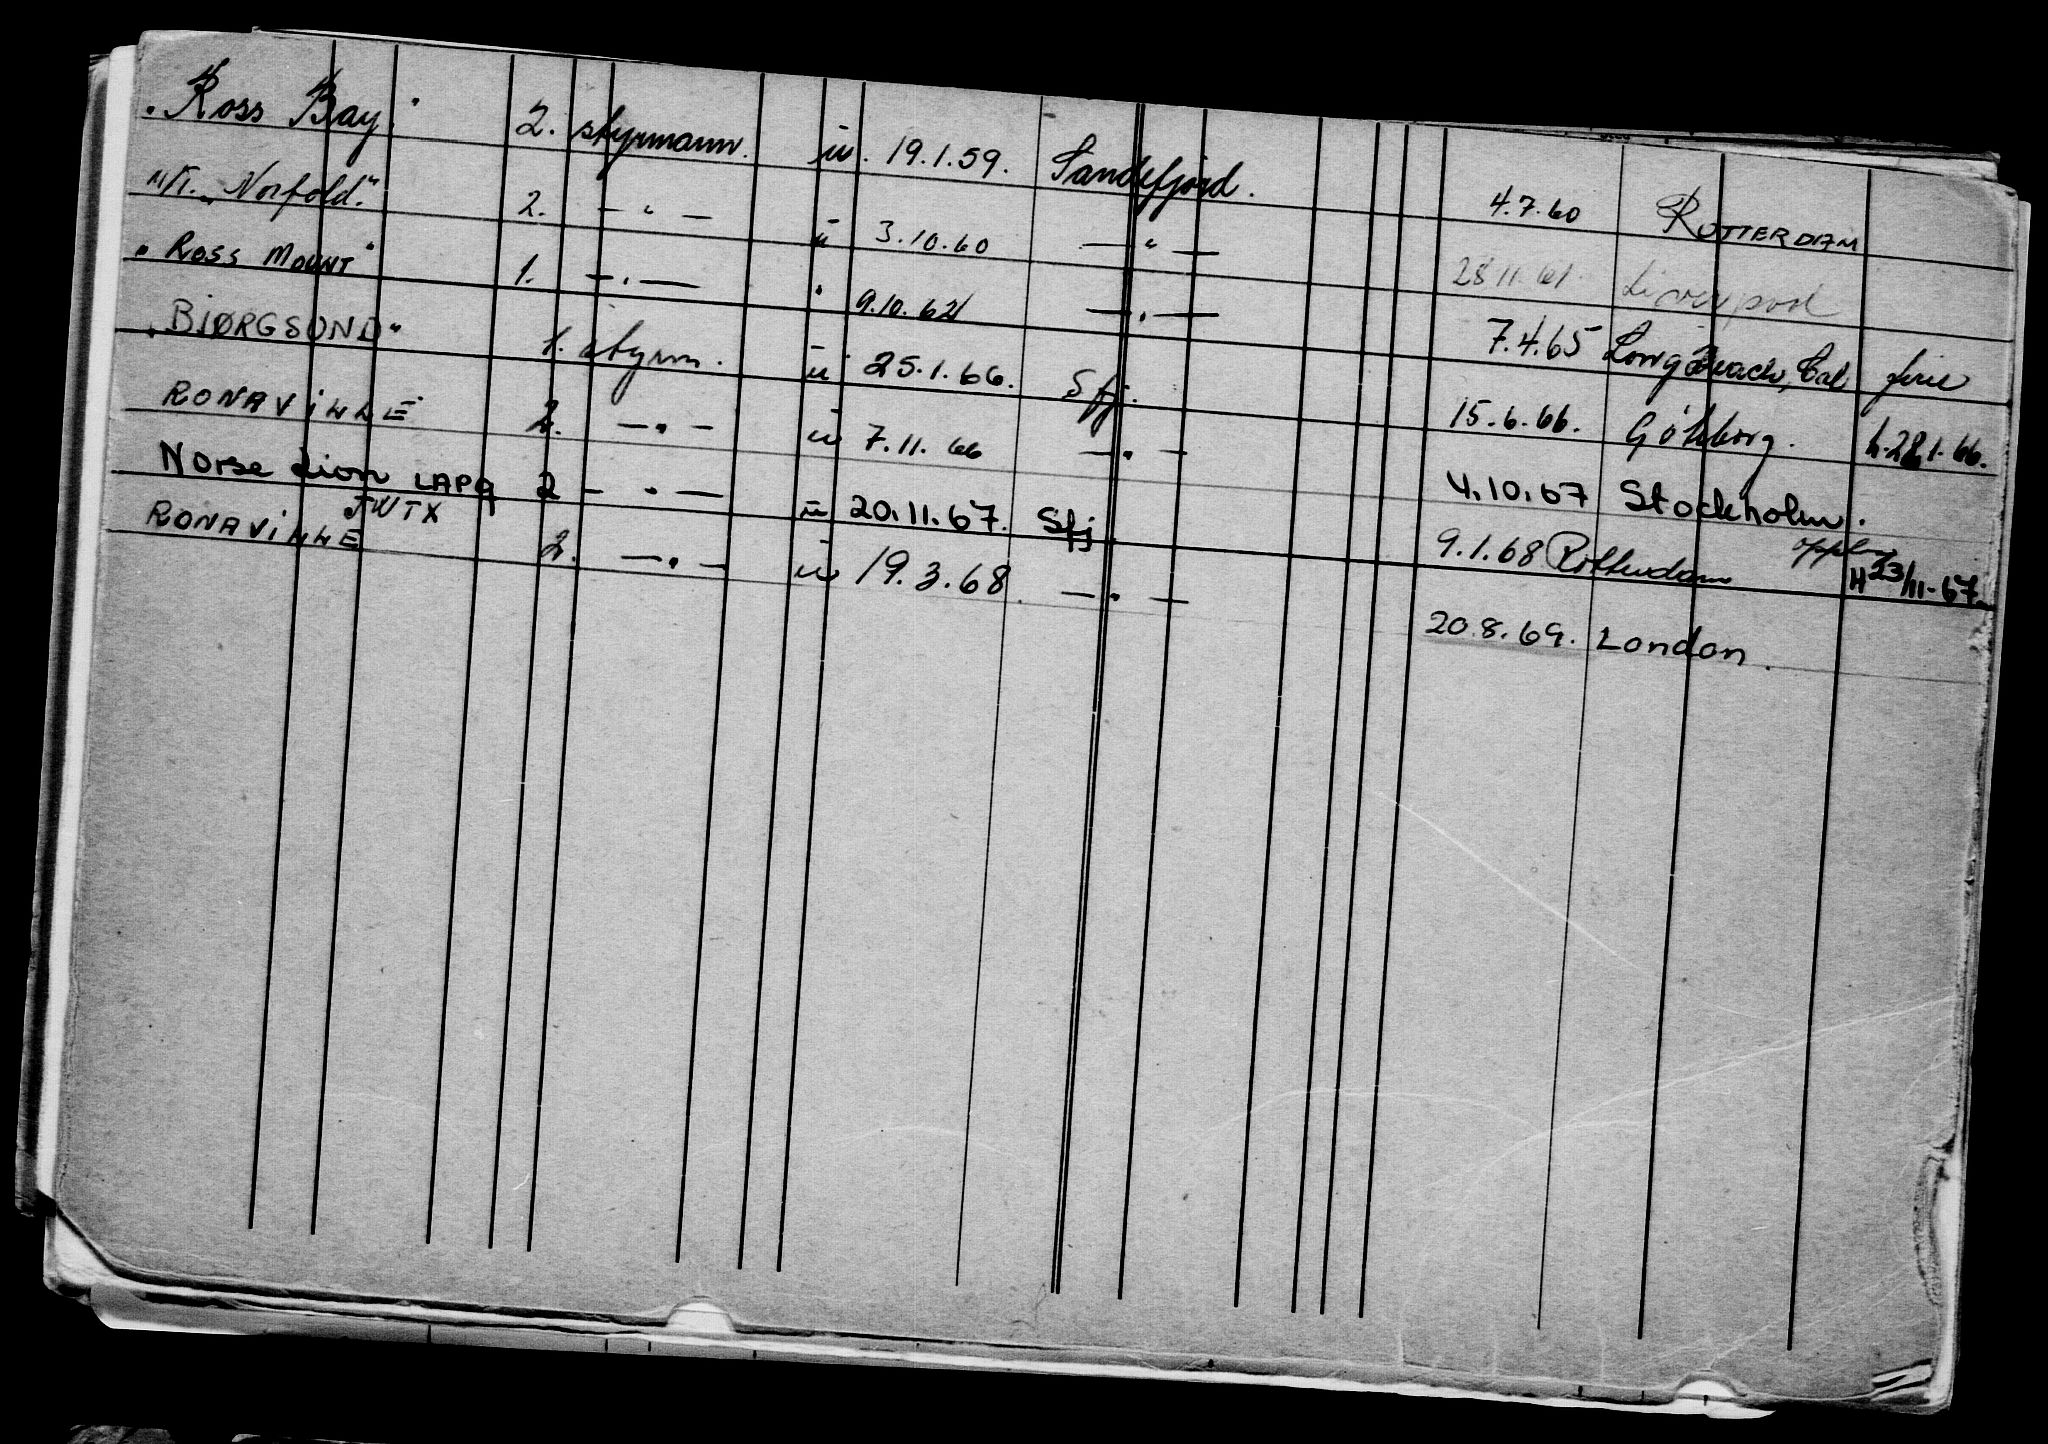 "Ross Bay." 2. styrmann. u. 19.1.59. Sandefjord. 4.7.60 ROTTERDAM
M/T. "Norfold." 2. — " — u 3.10.60 — " — 28.11.61. Liverpool
"ROSS MOUNT" 1. — " — " 9.10.62 — " — 7.4.65 Long Beach, Cal ferie
"BJØRGSUND" 1. styrm. u 25.1.66. Sfj. 15.6.66. Göteborg. h. 28.1.66.
RONAVILLE 2. — " — u 7.11.66 — " — 4.10.67 Stockholm.
Norse Lion LAPQ 2 — " — u 20.11.67. Sfj. 9.1.68 Rotterdam H 23/11-67.
JWTX
RONAVILLE 2. — " — u 19.3.68. — " — 20.8.69. London.